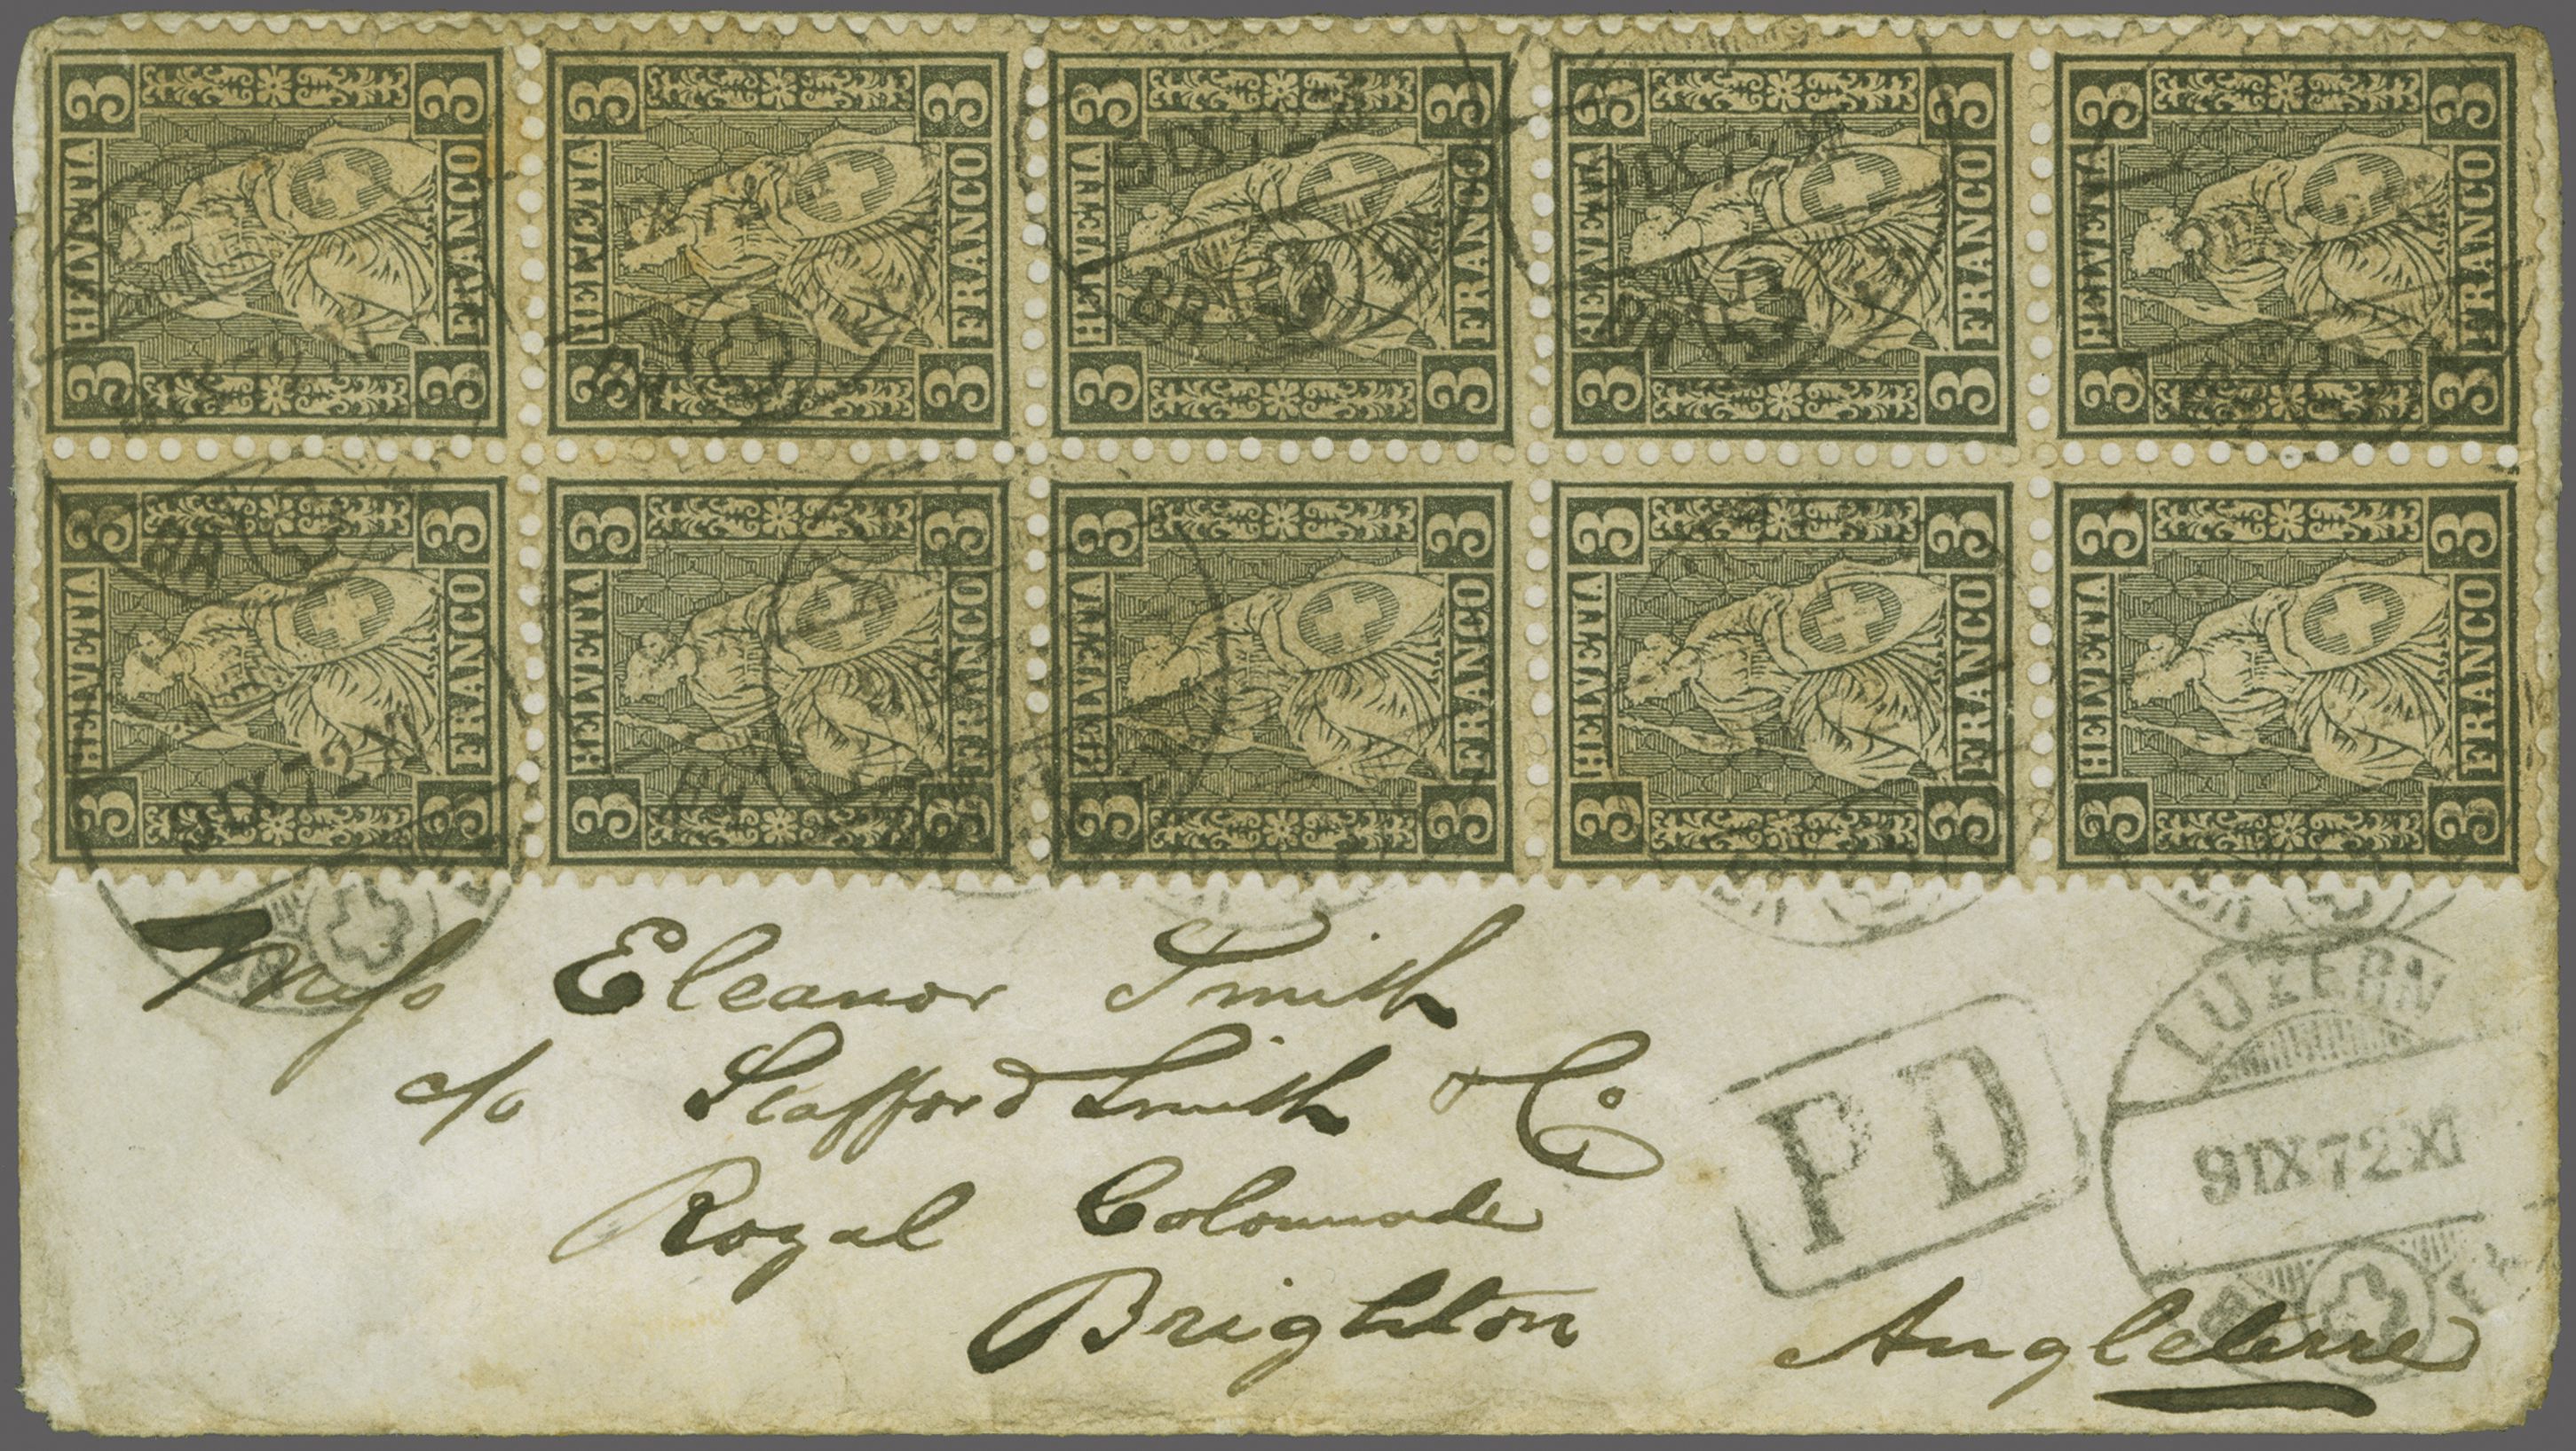 3 3 3 3 3 3 3 3 3 3
HELVETIA FRANCO HELVETIA FRANCO HELVETIA FRANCO HELVETIA FRANCO HELVETIA FRANCO
3 3 3 3 3 3 3 3 3 3
3 3 3 3 3 3 3 3 3 3
HELVETIA FRANCO HELVETIA FRANCO HELVETIA FRANCO HELVETIA FRANCO HELVETIA FRANCO
3 3 3 3 3 3 3 3 3 3
9 IX 72
Miss Eleanor Smith
c/o Stafford Smith & Co
Royal Colonnade
Brighton
Angleterre
PD
LUZERN
9 IX 72 XI